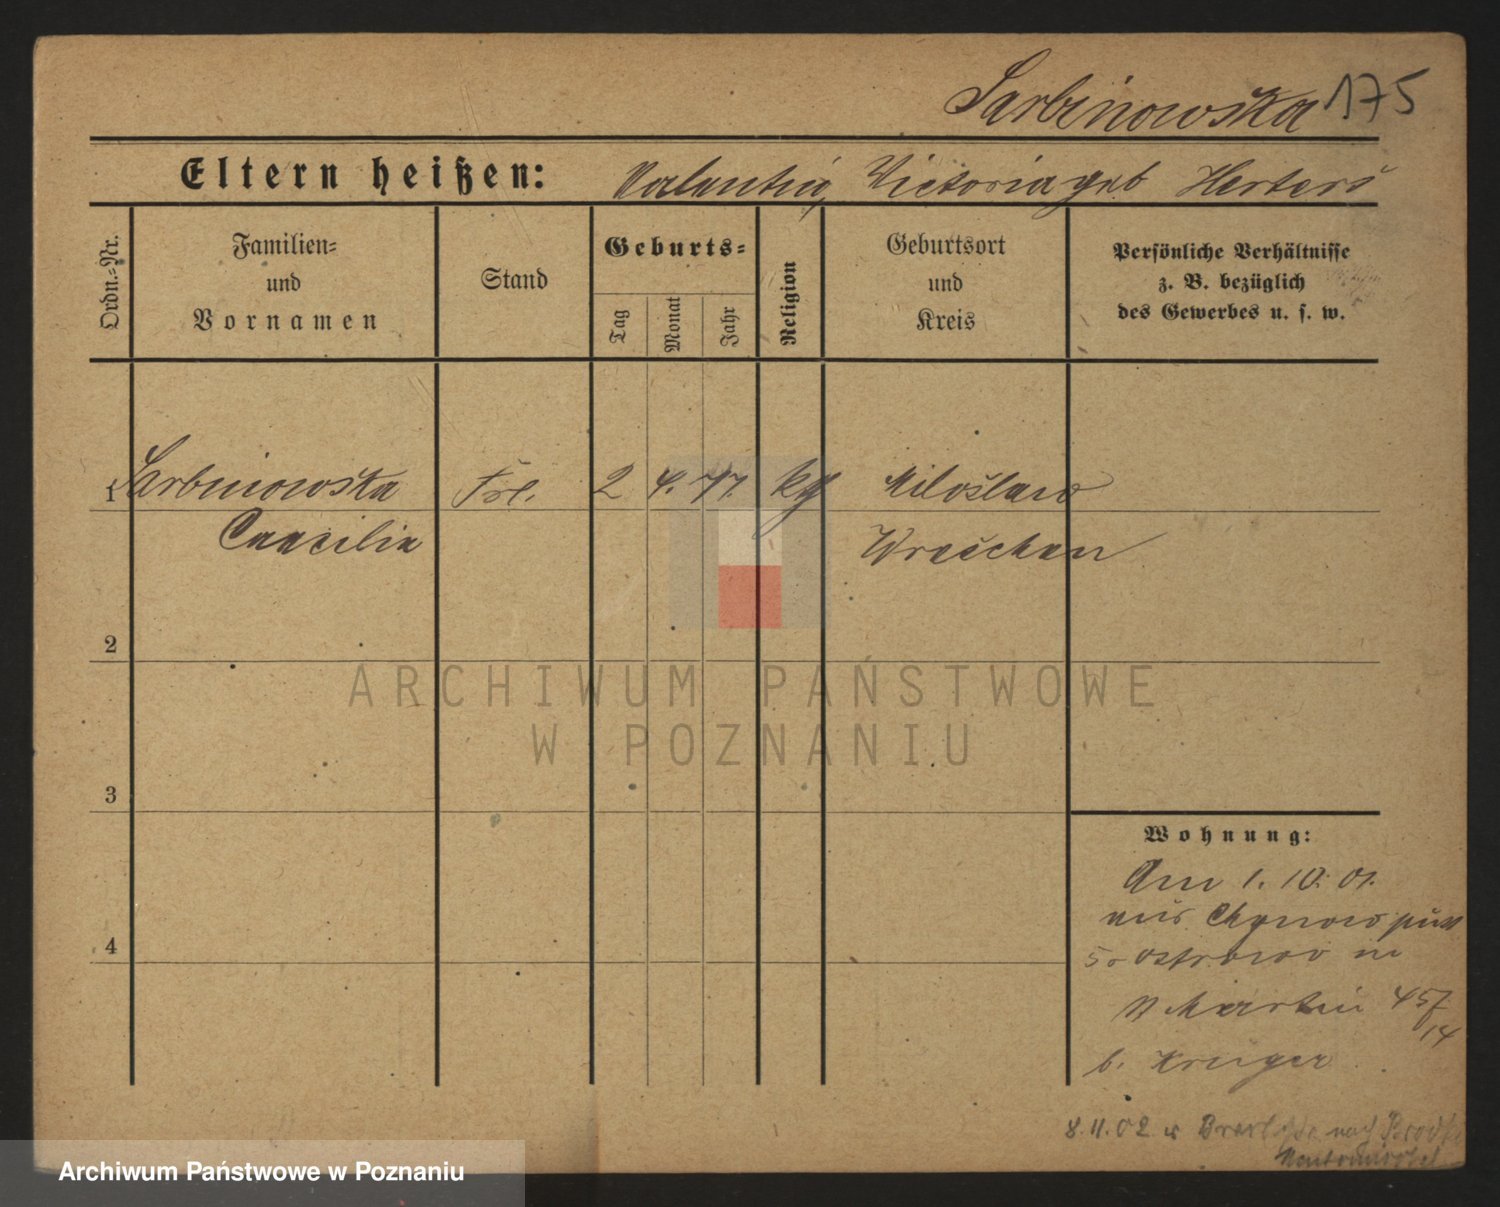 Sarbinowska 175
Eltern heißen: Valentin, Victoria geb Herters
Ordn.=Nr.
Familien=
und
Vornamen
Stand
Geburts=
Tag
Monat
Jahr
Religion
Geburtsort
und
Kreis
Persönliche Verhältnisse
z. B. bezüglich
des Gewerbes u. s. w.
1 Sarbinowska Frl. 2 4. 77. kg Miloslaw
Caecilia Wreschen
2
3
4
Wohnung:
Am 1. 10. 01.
aus Chynowo
Ostrowo in
Martin 45
14
b. Krüger
8.11.02 nach
ARCHIWUM PAŃSTWOWE
W POZNANIU
Archiwum Państwowe w Poznaniu